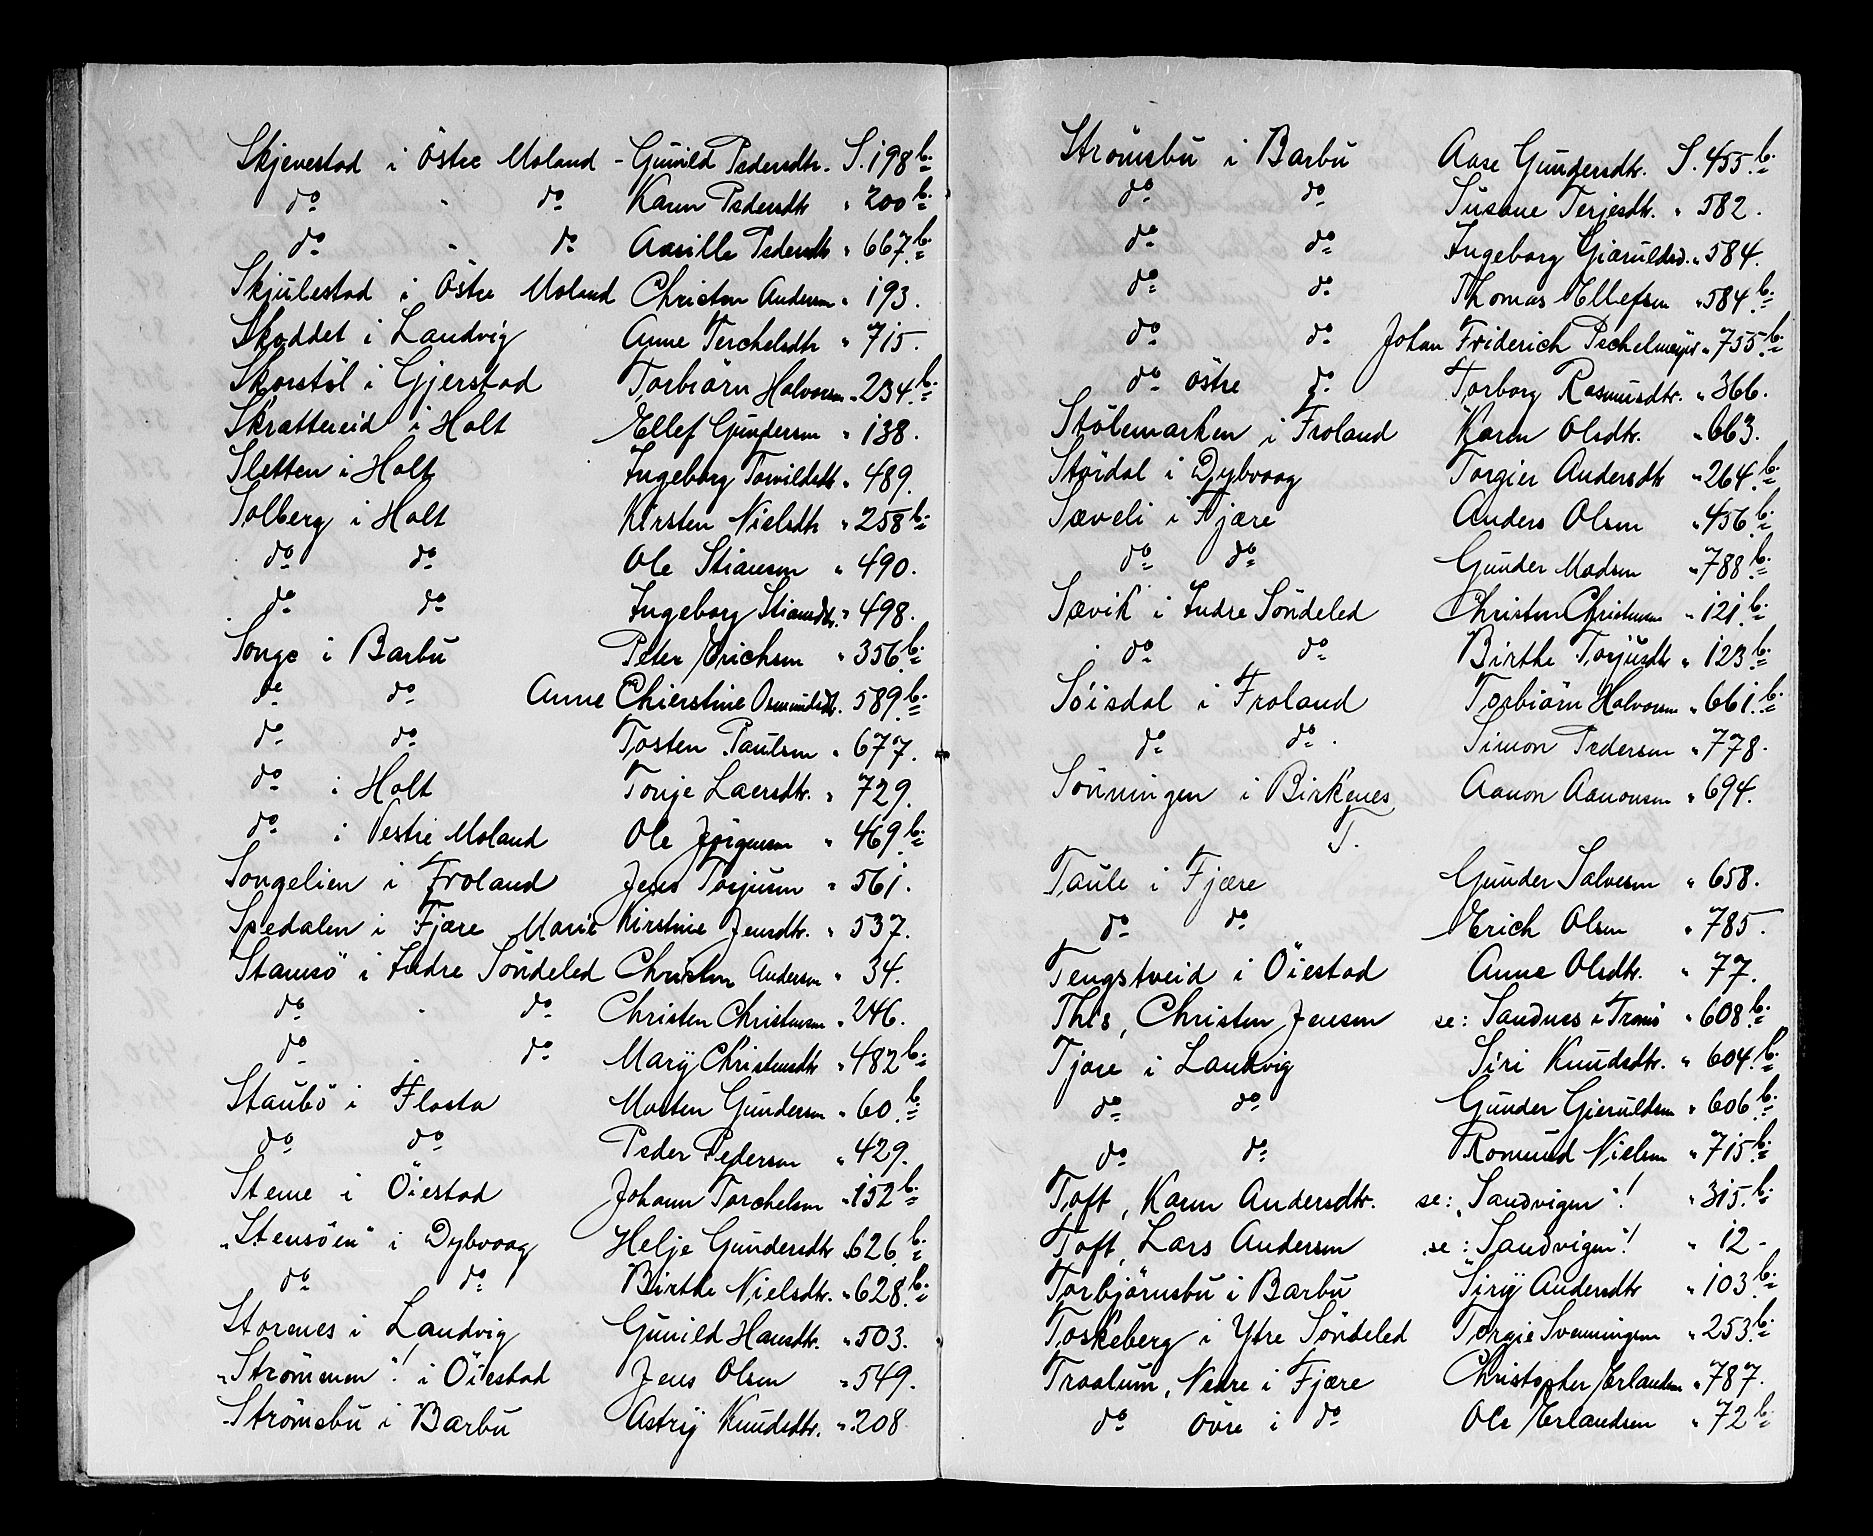 Skjevestad i Östre Moland - Gunild Pedersdtr. S. 198 b.
do " do Karen Pedersdtr " 200 b.
do " do Aasille Pedersdtr " 667. b.
Skjulestad i Östre Moland Christen Andersen " 193.
Skoddet i Landvig Anne Terchelsdtr " 715.
Skorstöl i Gjerstad Torbiörn Halvorsen " 234. b.
Skrattereid i Holt Ellef Gundersen " 138.
Sletten i Holt Ingeborg Torvildsdtr " 489.
Solberg i Holt Kirsten Nielsdtr " 258 b.
do do Ole Stiansen " 490.
do do Ingeborg Stiansdtr. " 498.
Songe i Barbu Peter Erichsen " 356. b.
do do Anne Chierstine Osmundsdtr. 589. b.
do do Tosten Paulsen " 677.
do i Holt Tonje Laersdtr. " 729.
do i Vestre Moland Ole Jörgensen " 469. b.
Songelien i Froland Jens Torjusen " 561.
Spedalen i Fjære Marie Kirstine Jensdtr. " 537.
Stamsö i Indre Söndeled Christen Andersen " 34.
do " do Christen Christensen " 246.
do " do Marij Christensdtr " 482 b.
Staubö i Flosta Morten Gundersen " 60. b.
do do Peder Pedersen " 429.
Stene i Öiestad Johann Torchelsen " 152 b.
"Stensöen" i Dybvaag Helje Gundersdtr " 626. b.
do do Birthe Nielsdtr. " 628. b.
Stornes i Landvig Gunild Hansdtr. " 503.
"Strömmen"! i Öiestad Jens Olsen " 549.
Strömsbu i Barbu Astrij Knudsdtr. " 208
Strömsbu i Barbu Aase Gundersdtr. S. 455. b.
do do Susane Terjesdtr. " 582.
do do Ingeborg Giæruldsd. " 584.
do do Thomas Ellefsen " 584. b.
do do Johan Friderich Pschelmeyer " 755. b.
do östre do Torborg Rasmusdtr. " 366.
Stölemarken i Froland Karen Olsdtr. " 663.
Stördal i Dybvaag Torgier Andersdtr " 264. b.
Sæveli i Fjære Anders Olsen " 456. b.
do do Gunder Madsen " 788. b.
Sævik i Indre Söndeled Christen Christensen " 121. b.
do do Birthe Torjusdtr " 123. b.
Söisdal i Froland Torbiörn Halvorsen " 661. b.
do do. Simon Pedersen " 778.
Sönningen i Birkenes Aanon Aanonsen " 694.
T.
Taule i Fjære Gunder Salvesen " 658.
do do Erich Olsen " 785.
Tengstveid i Öiestad Anne Olsdtr. " 77.
This, Christen Jensen se: Sandnes i Tromö " 608. b.
Tjore i Landvig Siri Knudsdtr. " 604. b.
do do Gunder Gieruldsen " 606. b.
do do Romund Nielsen " 715. b.
Toft, Karen Andersdtr. se: "Sandvigen"! " 315. b.
Toft, Lars Andersen se: "Sandvigen"! " 12 -
Torbjörnsbu i Barbu Sirij Andersdtr " 103. b.
Toskeberg i Ytre Söndeled Torgie Svenningsen " 253. b.
Traalum, Nedre i Fjære Christopher Erlandsen " 787.
do Övre i do Ole Erlandsen " 72 b.